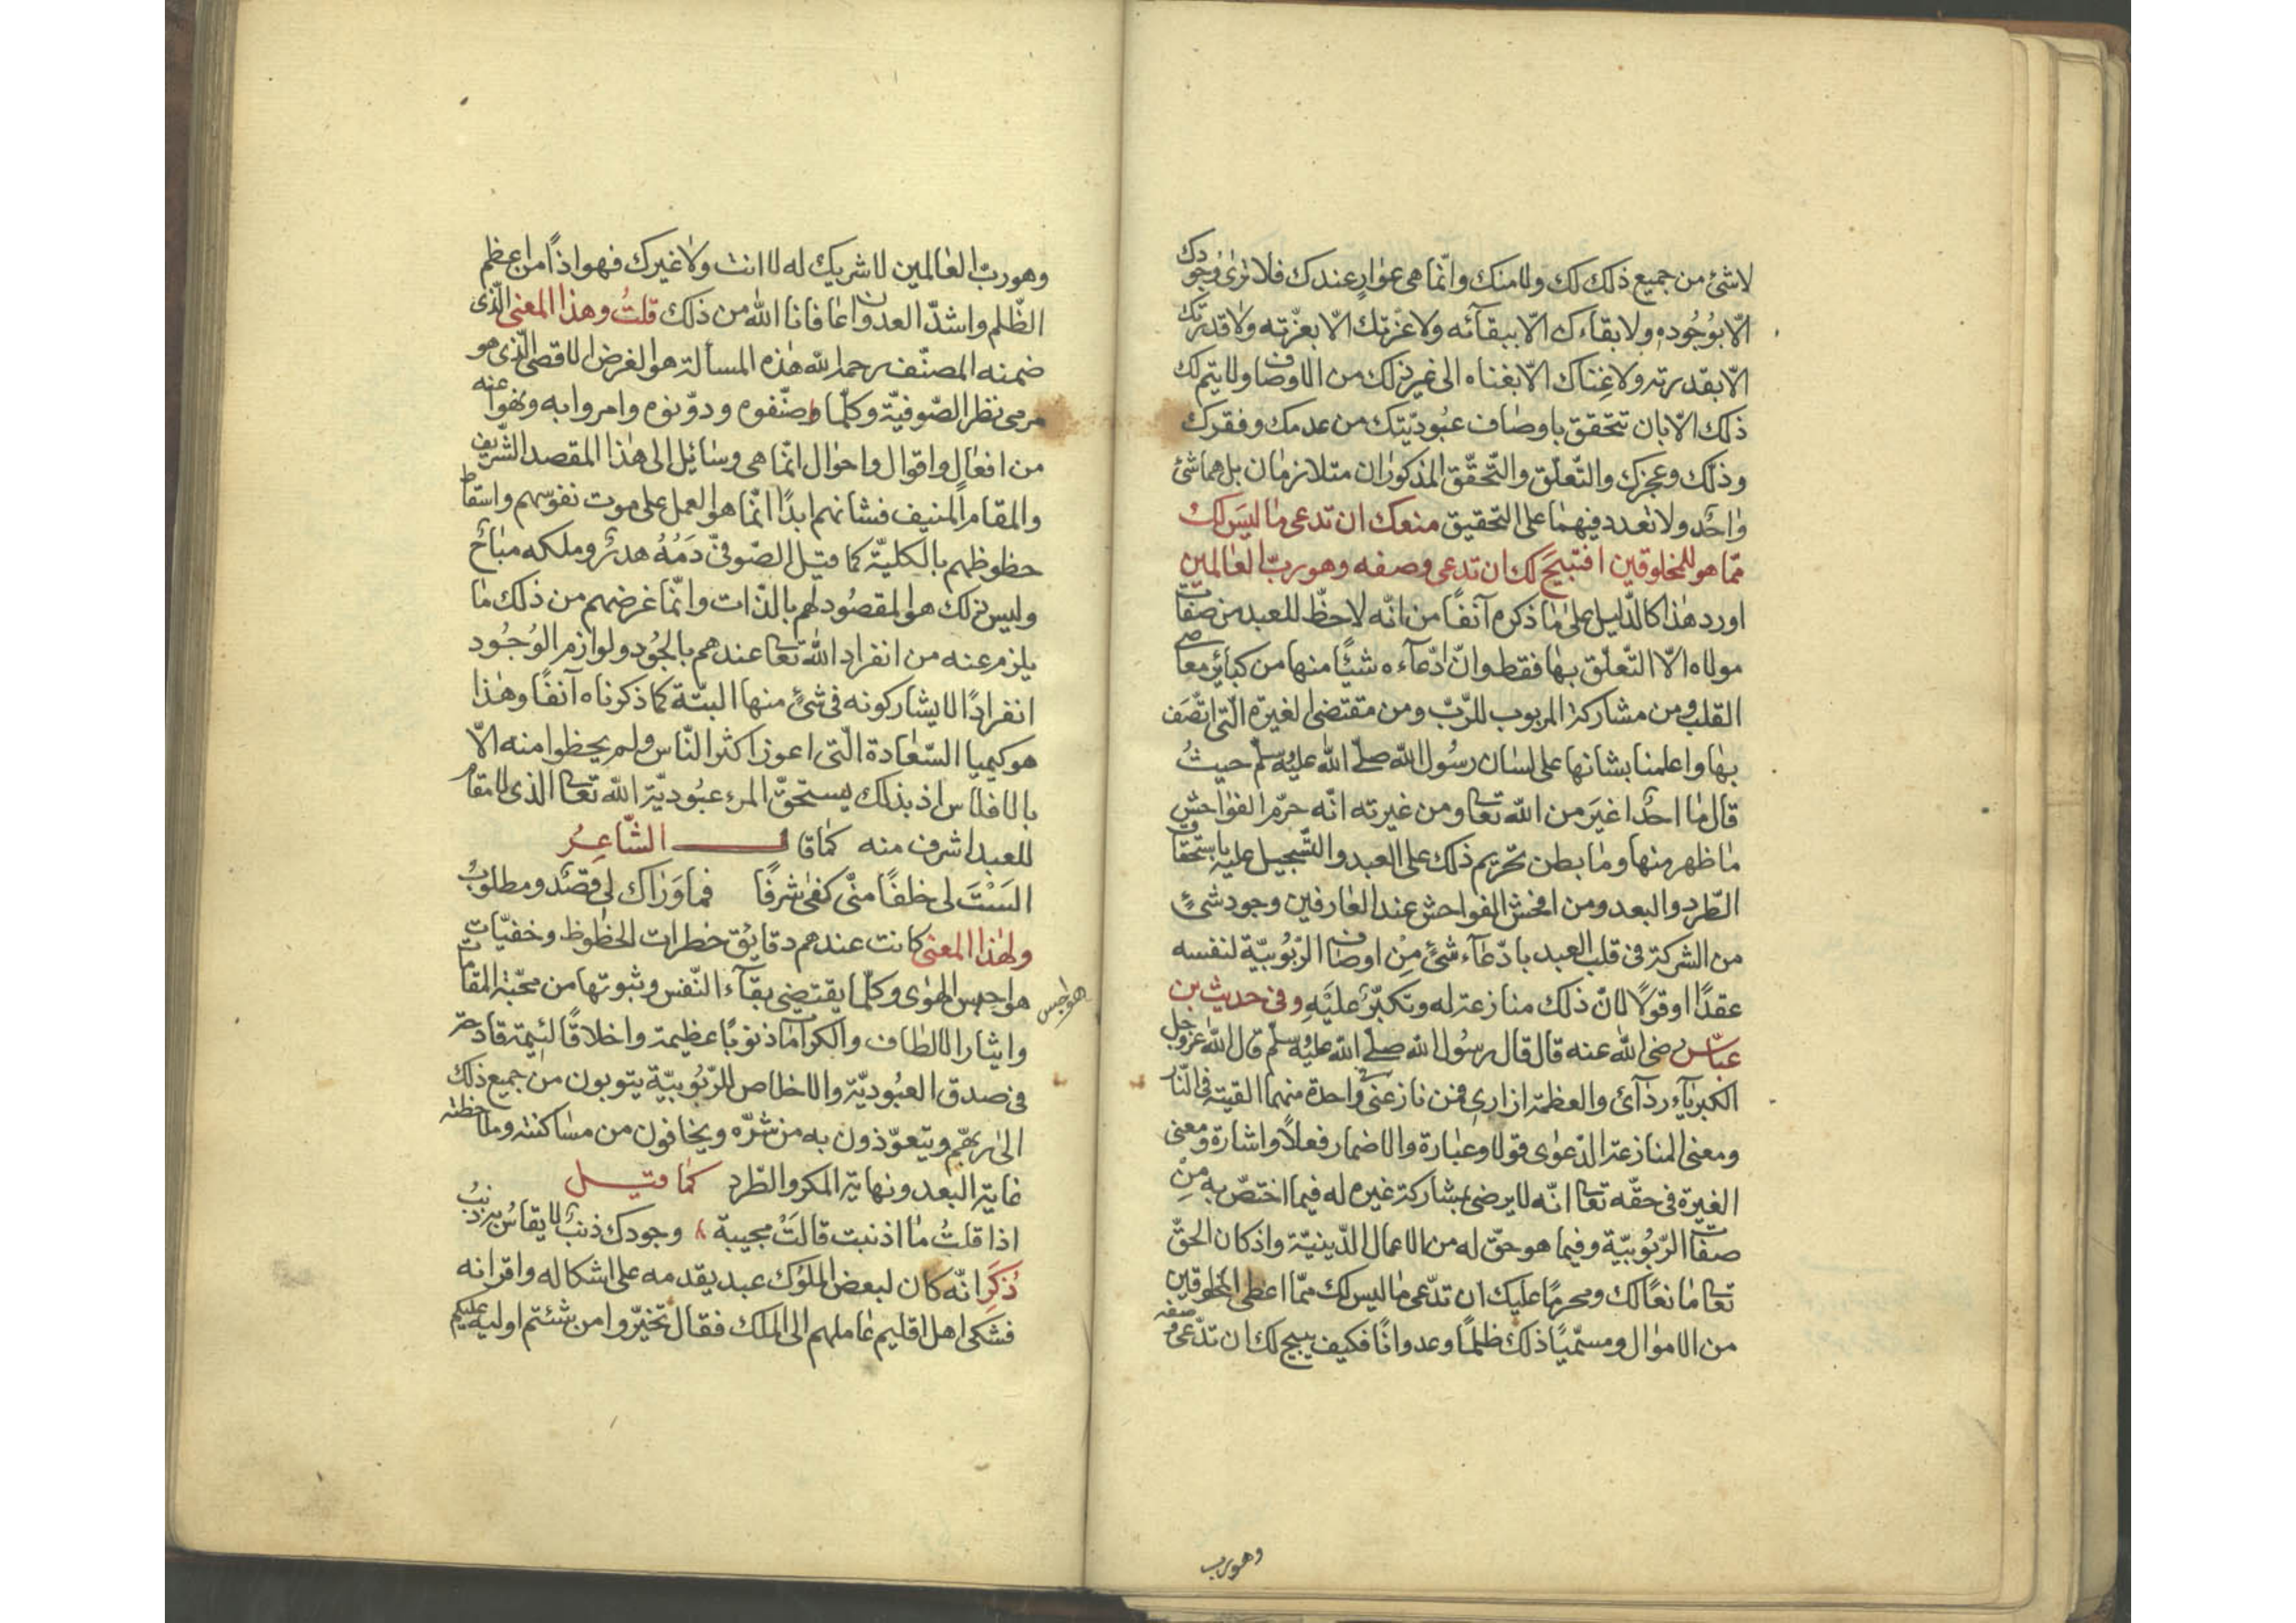 لا شئ من جميع ذلك لك ولا منك وانّما هى عوارٍ عندك فلا ترى وجودك
الّا بوُجُوده ولا بقاءك الّا ببقآئه ولا عزّتك الّا بعزّته ولا قدرتك
الّا بقدرته ولا غِناك الّا بغناه الى غير ذلك من الاوصاف ولا يتم لك
ذلك الّا بان تتحقق باوصاف عبُوديّتك من عدمك وفقرك
وذلّك وعجزك والتّعلّق والتّحقّق المذكوران متلازمان بل هما شئ
واحدٌ ولا تعدد فيهما على التحقيق منعك ان تدعى ما ليسَ لك
ممّا هو للمخلوقين افتبيحَ لك ان تدعى وصفه وهو ربّ العالمين
اورد هذا كالدّليل على ما ذكره آنفًا من انّه لا حظّ للعبد من صفات
مولاه الّا التّعلّق بها فقط وانّ ادّعآءه شئًا منها من كبائر معاصى
القلب ومن مشاركة المربوب للرّبّ ومن مقتضى الغيرة الّتى اتّصَف
بها واعلمنا بشانها على لسان رسُول الله صلّى الله عليه وسلّم حيثُ
قال ما احدٌ اغيَر من الله تعا ومن غيرته انّه حرّم الفواحش
ما ظهر منها وما بطن تحريم ذلك على العبد والتّسجيل عليه باستحقاق
الطّرد والبعد ومن افحش الفواحش عند العارفين وجود شئٍ
من الشركة فى قلب العبد بادّعآء شئ مِنْ اوصاف الرّبُوبيّة لنفسه
عقدًا او قولًا لانّ ذلك منازعة له وتكبّرٌ عليَهِ وفى حديث بن
عبّاس رضى الله عنه قال قال رسُول الله صلّى الله عليه وسلّم قال الله عز وجل
الكبريآء ردآئ والعظمة ازارى فمن نازعنى واحدة منهما القيته فى النّار
ومعنى المنازعة الدّعوى قولا وعبارة والاضمار فعلًا واشارة ومعنى
الغيرة فى حقّه تعا انّه لا يرضى بمشاركة غيره له فيما اختصّ به مِنْ
صفات الرّبُوبيّة وفيما هو حقّ له من الاعمال الدّينيّة واذ كان الحقّ
تعا مانعًا لك ومحرمًا عليك ان تدّعى ما ليس لك ممّا اعطى المخلوقين
من الاموال ومسمّيًا ذلك ظلمًا وعدوانًا فكيف يبيح لك ان تدّعى وصفه
وهو رب
وهو ربّ العالمين لا شريك له لا انت ولا غيرك فهو اذًا من اعظم
الظّلم واشدّ العدوان عافانا الله من ذلك قلتُ وهذا المعنى الّذى
ضمنه المصنّف رحمه الله هذه المسألة هو الغرض الاقصى الّذى هو
مرمى نظر الصّوفيّة وكلّما صنّفوه ودوّنوه وامروا به ونهوا عنه
من افعالٍ واقوال واحوال انّما هى وسائل الى هذا المقصد الشّريف
والمقام المنيف فشانهم ابدًا انّما هو العمل على موت نفوسهم واسقاط
حظوظهم بالكليّة كما قيل الصّوفىّ دَمُهُ هدرٌ وملكه مباحٌ
وليس ذلك هو المقصُود لهم بالذّات وانّما غرضهم من ذلك ما
يلزم عنه من انفراد الله تعا عندهم بالجُود ولوازم الوُجُود
انفرادًا لا يشاركونه فى شئٍ منها البتّة كما ذكرناه آنفًا وهذا
هو كيميا السّعادة الّتى اعوز اكثر النّاس ولم يحظوا منه الّا
بالافلاس اذ بذلك يستحقّ المرء عبُوديّة الله تعا الذى لا مقام
للعبد اشرف منه كما قال الشّاعِرُ
الَسْتَ لى خلفًا منّى كفى شرفًا فما وَرَاك لى قصْدٌ ومطلوبُ
ولهذا المعنى كانت عندهم دقايُق خطرات الحظوظ وخفيّات
هواجس الهوى وكلّما يقتضى بقآء النّفس وثبوتها من محبّة المقامات
هواجس
وايثار الالطاف والكرامات ذنوبًا عظيمة واخلاقًا لئيمة قادحة
فى صدق العبُوديّة والاخلاص للرّبُوبيّة يتوبون من جميع ذلك
الى ربّهم ويتعوّذون به من شرّه ويخافون من مساكنته وملاحظته
غاية البُعد ونهاية المكر والطّرد كما قيل
اذا قلتُ ما اذنبت قالَتْ مجيبة وجودك ذنبٌ لا يقاسُ به ذنبُ
ذكِرَ انّه كان لبعض الملُوك عبد يقدمه على اشكاله واقرانه
فشكى اهل اقليم عاملهم الى الملك فقال تخيّروا من شئتم اوليه عليكم